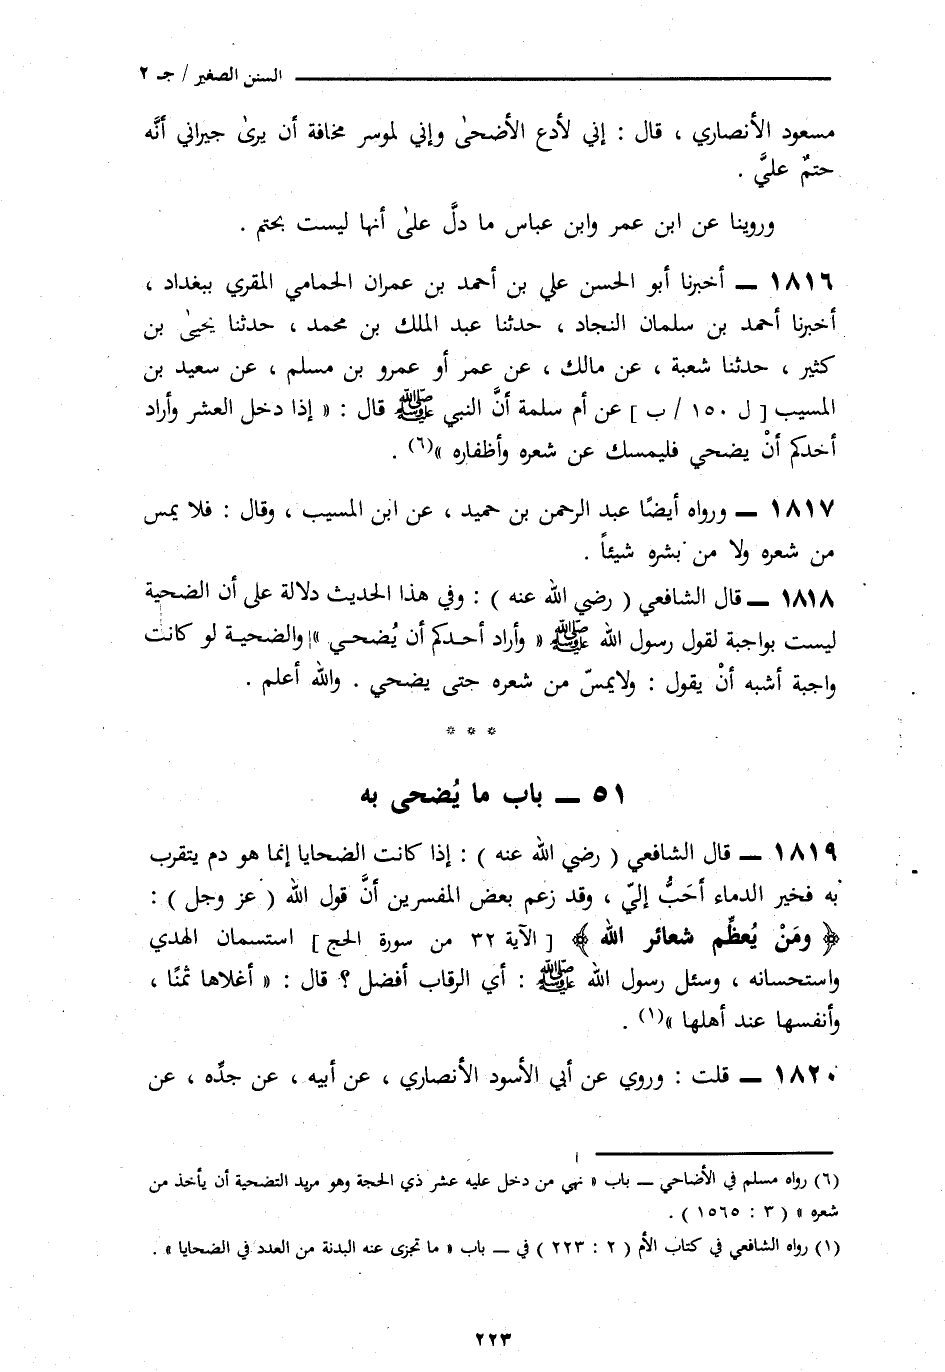 السنن الصغير / جـ ٢
مسعود الأنصاري ، قال : إني لأدع الأضحىٰ وإني لموسر مخافة أن يرىٰ جيراني أنَّه
حتمٌ عليَّ .
وروينا عن ابن عمر وابن عباس ما دلَّ علىٰ أنها ليست بحتم .
١٨١٦ ــ أخبرنا أبو الحسن علي بن أحمد بن عمران الحمامي المقري ببغداد ،
أخبرنا أحمد بن سلمان النجاد ، حدثنا عبد الملك بن محمد ، حدثنا يحيىٰ بن
كثير ، حدثنا شعبة ، عن مالك ، عن عمر أو عمرو بن مسلم ، عن سعيد بن
المسيب [ ل ١٥٠ / ب ] عن أم سلمة أنَّ النبي ﷺ قال : « إذا دخل العشر وأراد
أحدكم أنْ يضحي فليمسك عن شعره وأظفاره »(٦) .
١٨١٧ ــ ورواه أيضًا عبد الرحمن بن حميد ، عن ابن المسيب ، وقال : فلا يمس
من شعره ولا من بشره شيئاً .
١٨١٨ ــ قال الشافعي ( رضي الله عنه ) : وفي هذا الحديث دلالة على أن الضحية
ليست بواجبة لقول رسول الله ﷺ « وأراد أحدكم أن يُضحي » والضحية لو كانت
واجبة أشبه أنْ يقول : ولايمسّ من شعره حتى يضحي . والله أعلم .
* * *
٥١ ــ باب ما يُضحى به
١٨١٩ ــ قال الشافعي ( رضي الله عنه ) : إذا كانت الضحايا إنما هو دم يتقرب
به فخير الدماء أحَبُّ إليّ ، وقد زعم بعض المفسرين أنَّ قول الله ( عز وجل ) :
﴿ ومَنْ يُعظِّم شعائر الله ﴾ [ الآية ٣٢ من سورة الحج ] استسمان الهدي
واستحسانه ، وسئل رسول الله ﷺ : أي الرقاب أفضل ؟ قال : « أغلاها ثمنًا ،
وأنفسها عند أهلها »(١) .
١٨٢٠ ــ قلت : وروي عن أبي الأسود الأنصاري ، عن أبيه ، عن جدِّه ، عن
(٦) رواه مسلم في الأضاحي ــ باب « نهي من دخل عليه عشر ذي الحجة وهو مريد التضحية أن يأخذ من
شعره » ( ٣ : ١٥٦٥ ) .
(١) رواه الشافعي في كتاب الأم ( ٢ : ٢٢٣ ) في ــ باب « ما تجزى عنه البدنة من العدد في الضحايا » .
٢٢٣